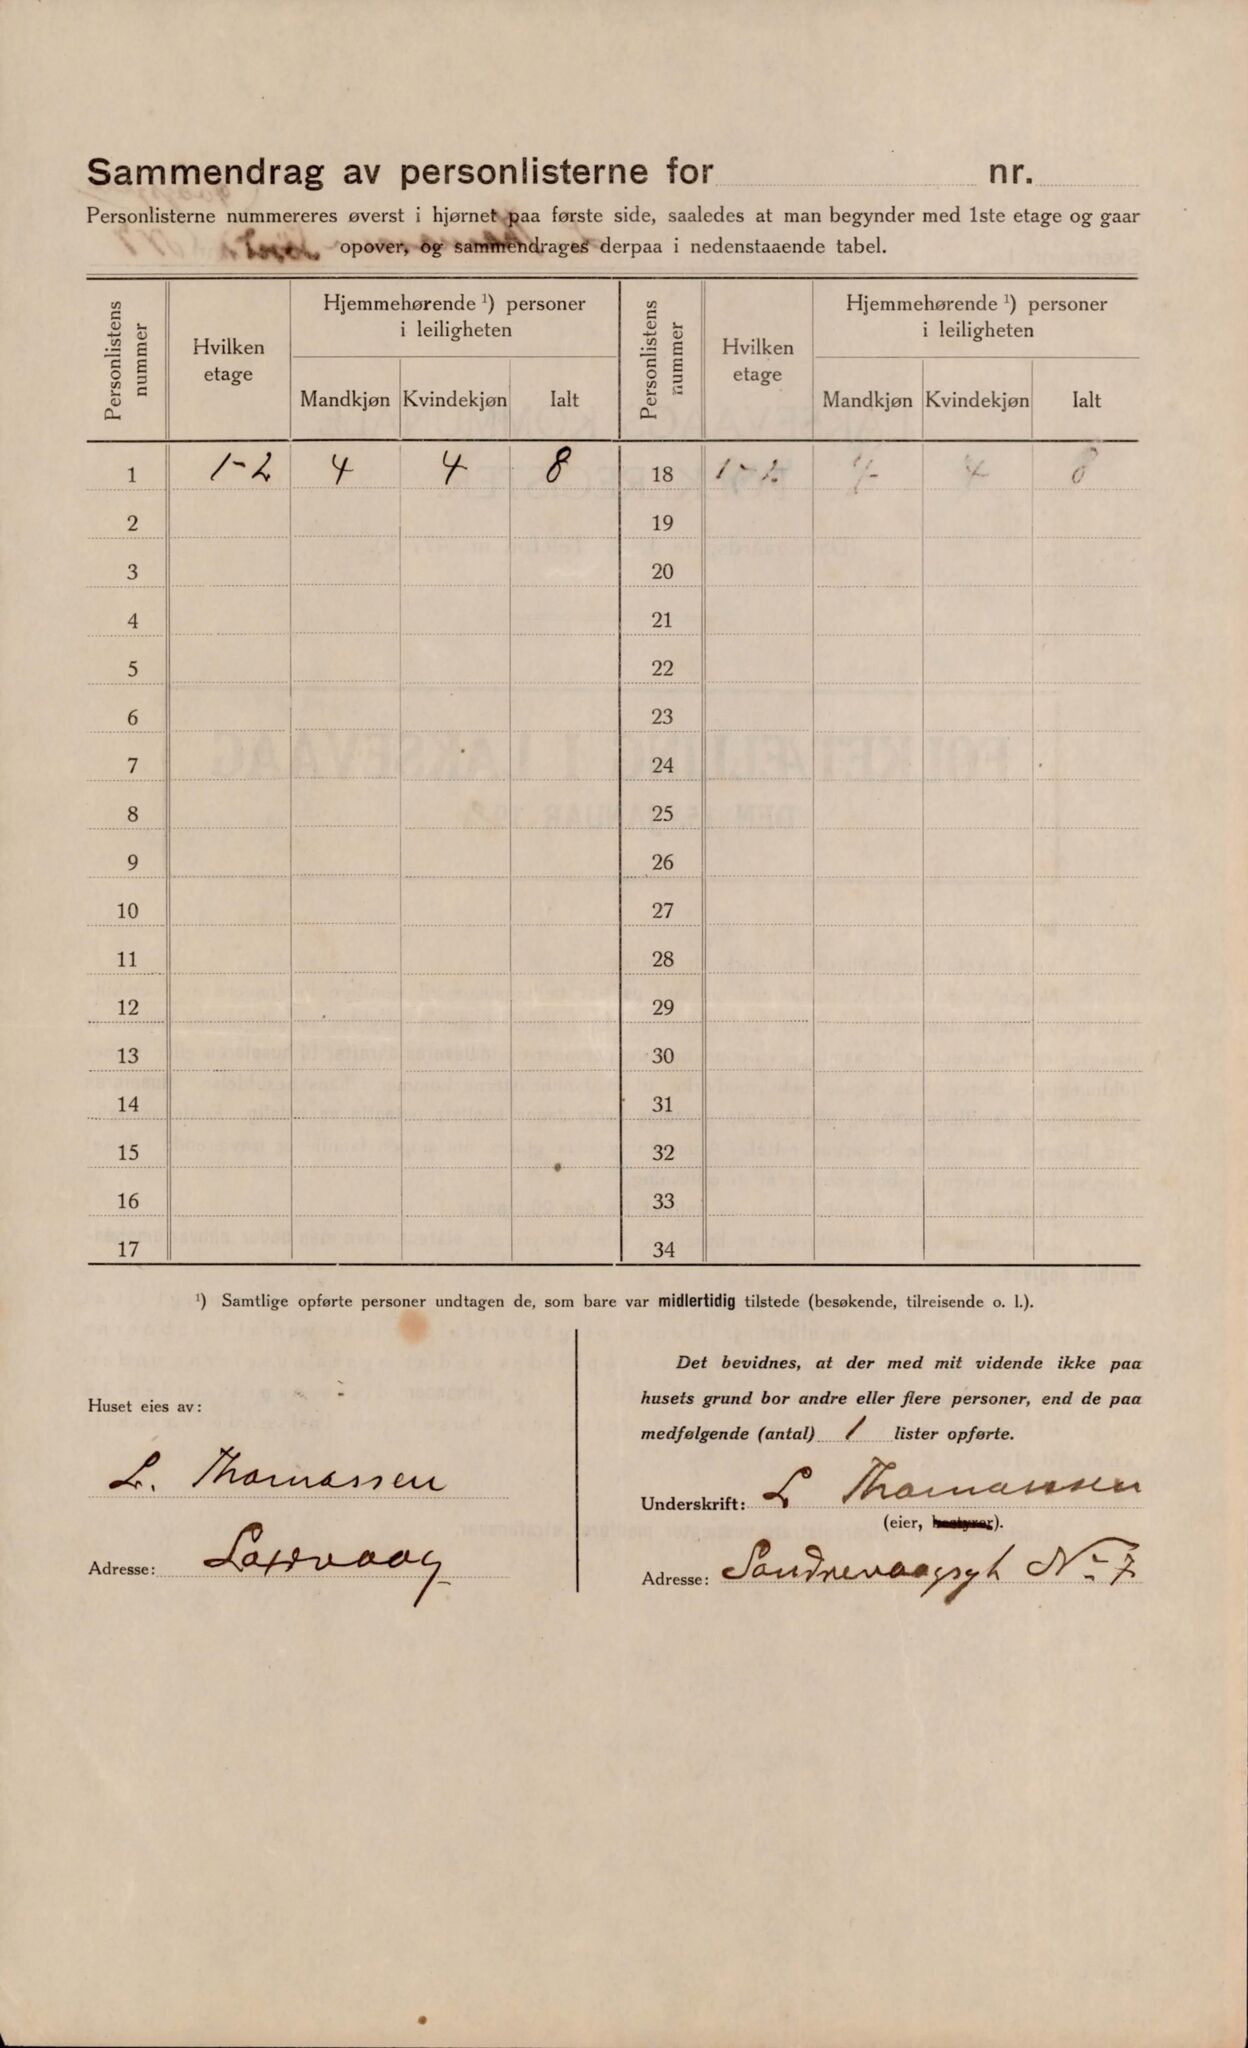 Sammendrag av personlisterne for nr.
Personlisterne nummereres øverst i hjørnet paa første side, saaledes at man begynder med 1ste etage og gaar
opover, og sammendrages derpaa i nedenstaaende tabel.
Personlistens nummer Hvilken etage Hjemmehørende ¹) personer i leiligheten Personlistens nummer Hvilken etage Hjemmehørende ¹) personer i leiligheten
Mandkjøn Kvindekjøn Ialt Mandkjøn Kvindekjøn Ialt
1 1-2 4 4 8 18 1-2 4 4 8
2 19
3 20
4 21
5 22
6 23
7 24
8 25
9 26
10 27
11 28
12 29
13 30
14 31
15 32
16 33
17 34
¹) Samtlige opførte personer undtagen de, som bare var midlertidig tilstede (besøkende, tilreisende o. l.).
Huset eies av:
L. Thomassen
Adresse: Laxevaag
Det bevidnes, at der med mit vidende ikke paa
husets grund bor andre eller flere personer, end de paa
medfølgende (antal) 1 lister opførte.
Underskrift: L Thomassen
(eier, bestyrer).
Adresse: Søndrevaagsgt No 7